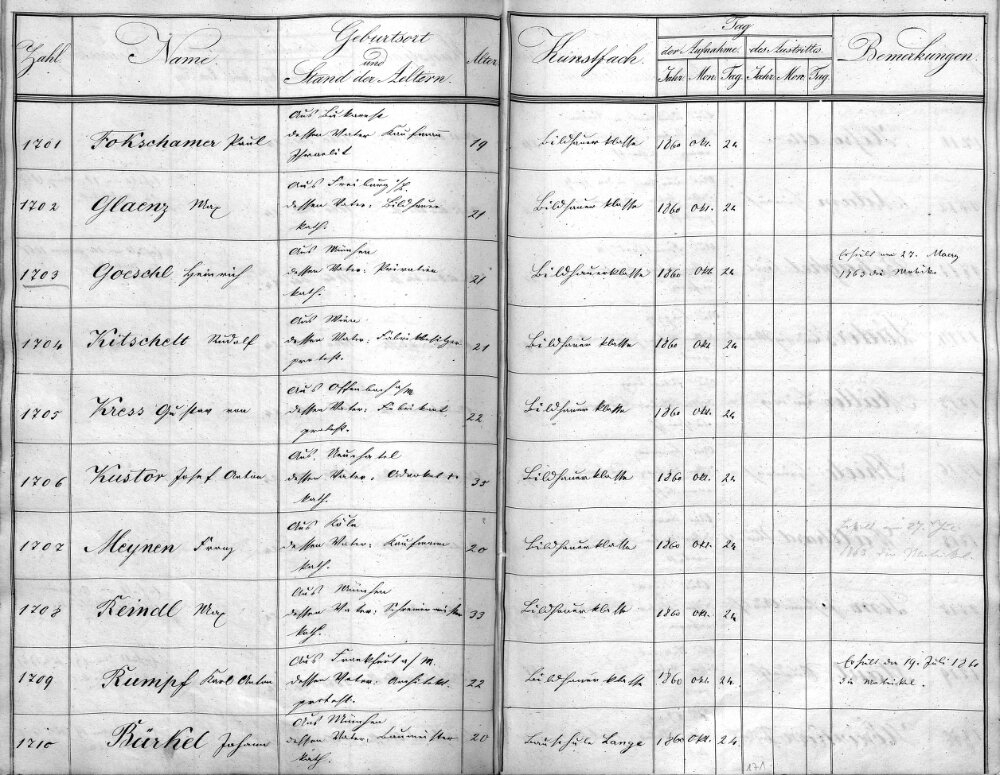 Zahl Name Geburtsort und Stand der Aeltern. Alter Kunstfach. Tag Bemerkungen.
der Aufnahme. des Austrittes.
Jahr Mon. Tag Jahr Mon. Tag.
Aus Bukarest
1701 Fokschamer Paul dessen Vater Kaufmann 19 Bildhauerklasse 1860 Okt. 24
Israelit
Aus Freiburg
1702 Glaenz Max dessen Vater: Bildhauer 21 Bildhauerklasse 1860 Okt. 24
kath.
Aus München Erhielt am 27. März
1703 Goeschl Heinrich dessen Vater: Privatier 21 Bildhauerklasse 1860 Okt. 24 1863 die Matrikel
kath.
Aus Wien
1704 Kitschelt Rudolf dessen Vater: Fabrikbesitzer 21 Bildhauerklasse 1860 Okt. 24
protest.
Aus Offenbach a/M
1705 Kress Gustav von dessen Vater: Fabrikant 22 Bildhauerklasse 1860 Okt. 24
protest.
Aus Neuchatel
1706 Kustor Josef Anton dessen Vater: 35 Bildhauerklasse 1860 Okt. 24
kath.
Aus Köln
1707 Meynen Franz dessen Vater: Kaufmann 20 Bildhauerklasse 1860 Okt. 24
kath. 1863 die Matrikel.
Aus München
1708 Reindl Max dessen Vater: 33 Bildhauerklasse 1860 Okt. 24
kath.
Aus Frankfurt a/M. Erhielt den 19. Juli 1860
1709 Rumpf Karl Anton dessen Vater: Architekt. 22 Bildhauerklasse 1860 Okt. 24 die Matrikel.
protest.
Aus München
1710 Bürkel Johann dessen Vater: Baumeister 20 Bauschule Lange 1860 Okt. 24
kath.
171